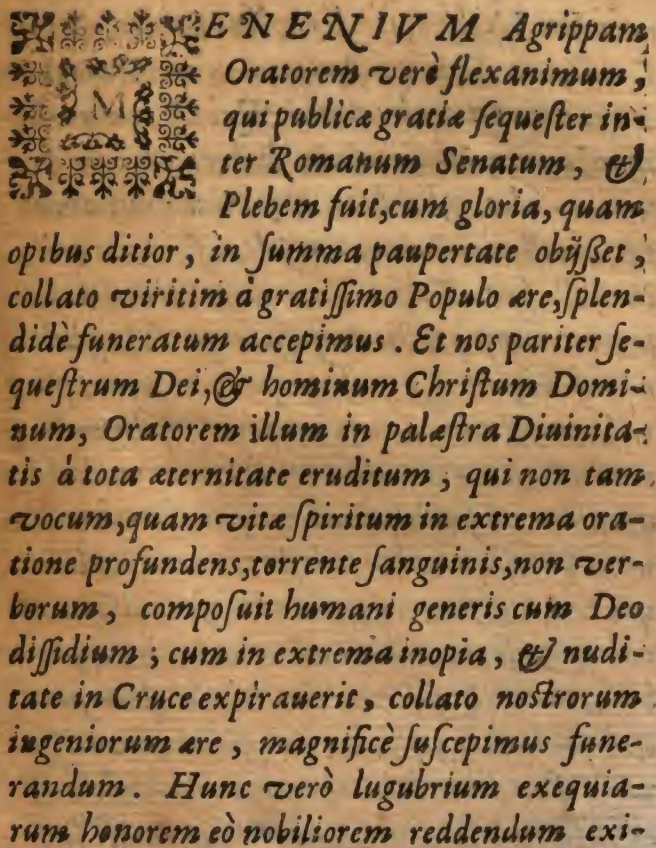 MENENIVM Agrippam,
Oratorem verè flexanimum,
qui publicæ gratiæ ſequeſter in-
ter Romanum Senatum, &
Plebem fuit, cum gloria, quam
opibus ditior, in ſumma paupertate obijſſet,
collato viritim à gratiſſimo Populo ære, ſplen-
didè funeratum accepimus. Et nos pariter ſe-
queſtrum Dei, & hominum Chriſtum Domi-
num, Oratorem illum in palæſtra Diuinita-
tis á tota æternitate eruditum, qui non tam
vocum, quam vitæ ſpiritum in extrema ora-
tione profundens, torrente ſanguinis, non ver-
borum, compoſuit humani generis cum Deo
diſſidium; cum in extrema inopia, & nudi-
tate in Cruce expirauerit, collato noſtrorum
ingeniorum ære, magnificè ſuſcepimus fune-
randum. Hunc verò lugubrium exequia-
rum honorem eò nobiliorem reddendum exi-